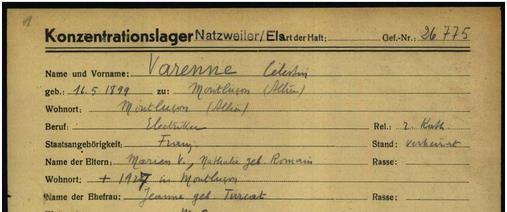 Konzentrationslager Natzweiler/Els. Art der Haft: Gef.-Nr.: 26775
Name und Vorname: Varenne Célestin
geb.: 16.5.1899 zu: Montluçon (Allier)
Wohnort: Montluçon (Allier)
Beruf: Electriker Rel.: r. Kath
Staatsangehörigkeit: Franz Stand: verheirat
Name der Eltern: Marien V., geb. Romain Rasse:
Wohnort: + 1927 in Montluçon
Name der Ehefrau: Jeanne geb. Turcat Rasse: